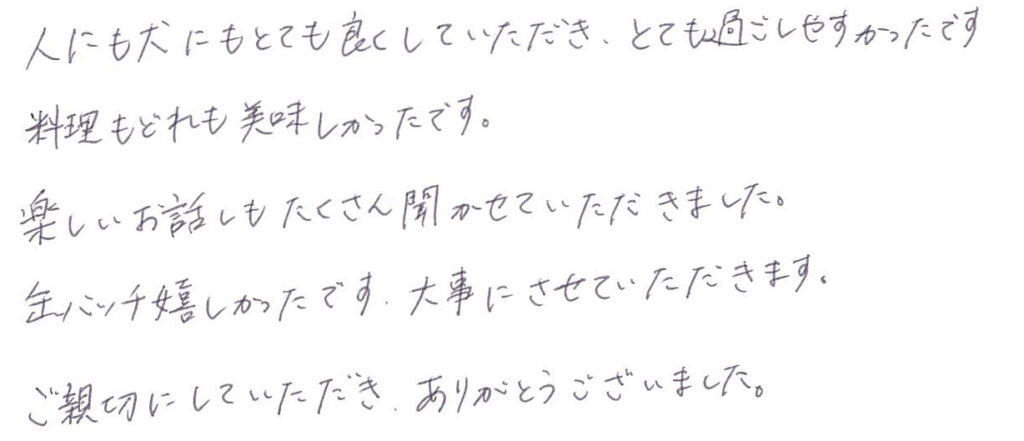 人にも犬にもとても良くしていただき、とても過ごしやすかったです
料理もどれも美味しかったです。
楽しいお話しもたくさん聞かせていただきました。
缶バッチ嬉しかったです、大事にさせていただきます。
ご親切にしていただき、ありがとうございました。